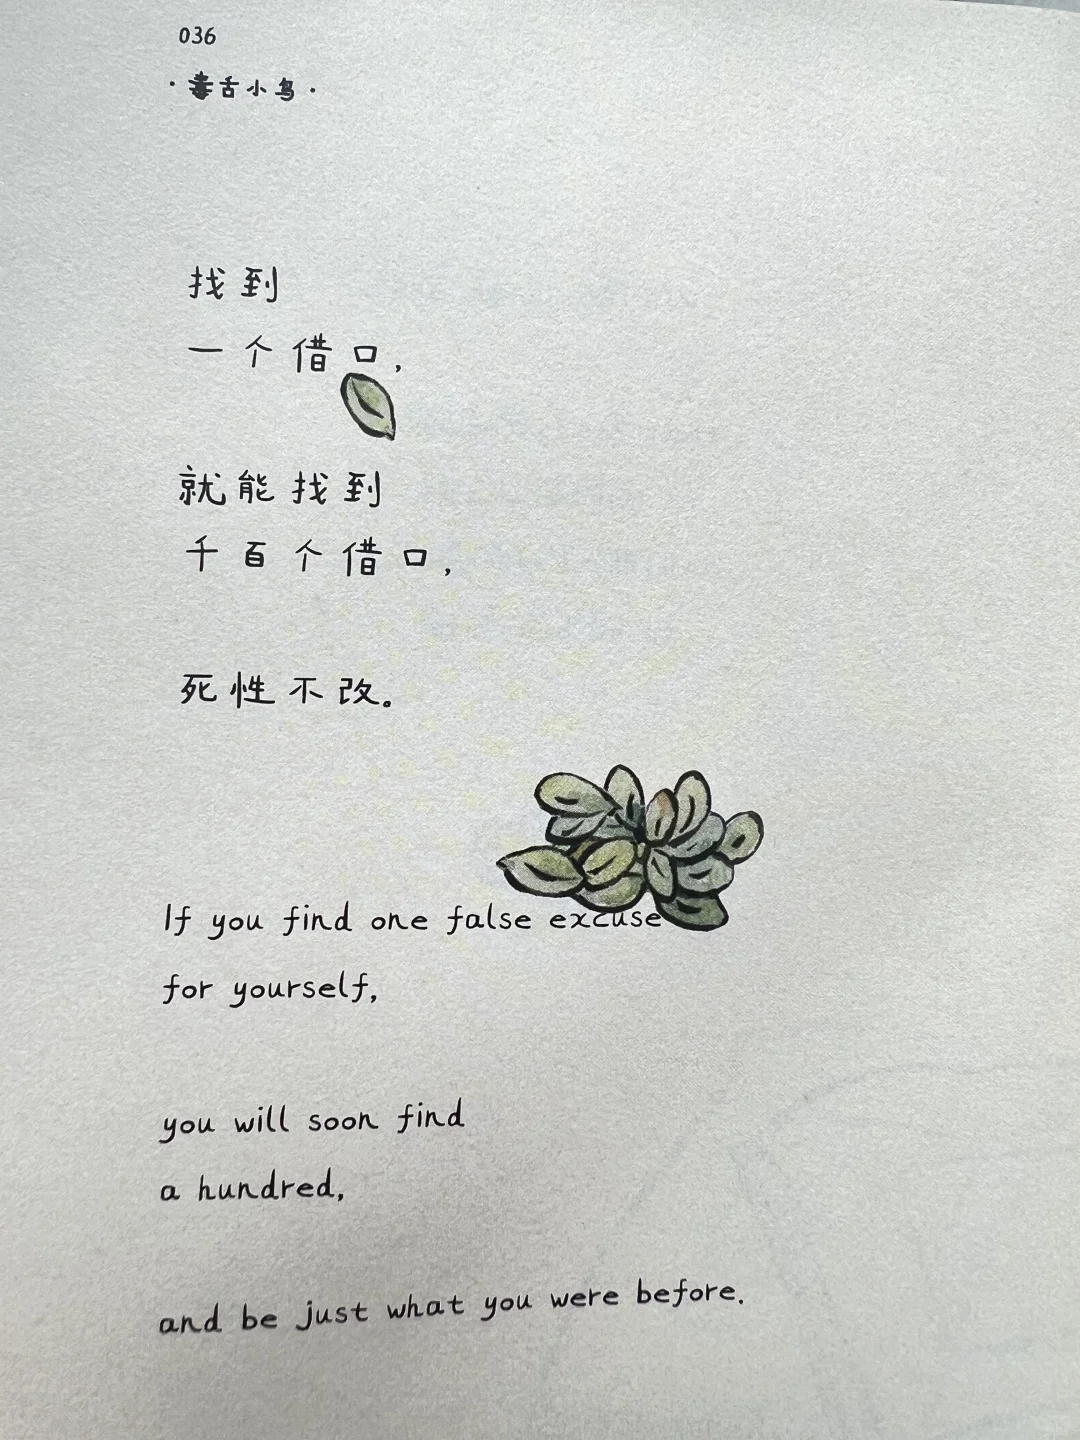 036
·毒舌小鸟·
找到
一个借口，
就能找到
千百个借口，
死性不改。
If you find one false excuse
for yourself,
you will soon find
a hundred,
and be just what you were before.